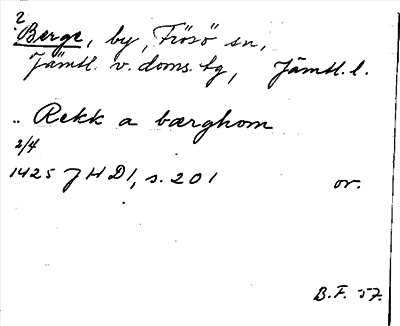 2
Berge, by, Frösö sn,
Jämtl. v. doms. tg, Jämtl. l.
.. Rekk a bærghom
2/4
1425 JHD1, s. 201 or.
B.F. 57.